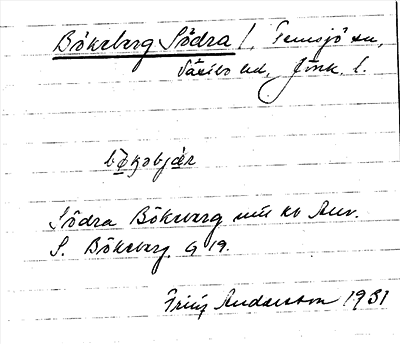 Bökeberg Södra l, Femsjö sn,
Västbo hd, Jönk. l.
bøkabjær
Södra Bökeberg mtl kb Anv.
S. Bökeberg G 19.
Fritz Andersson 1931